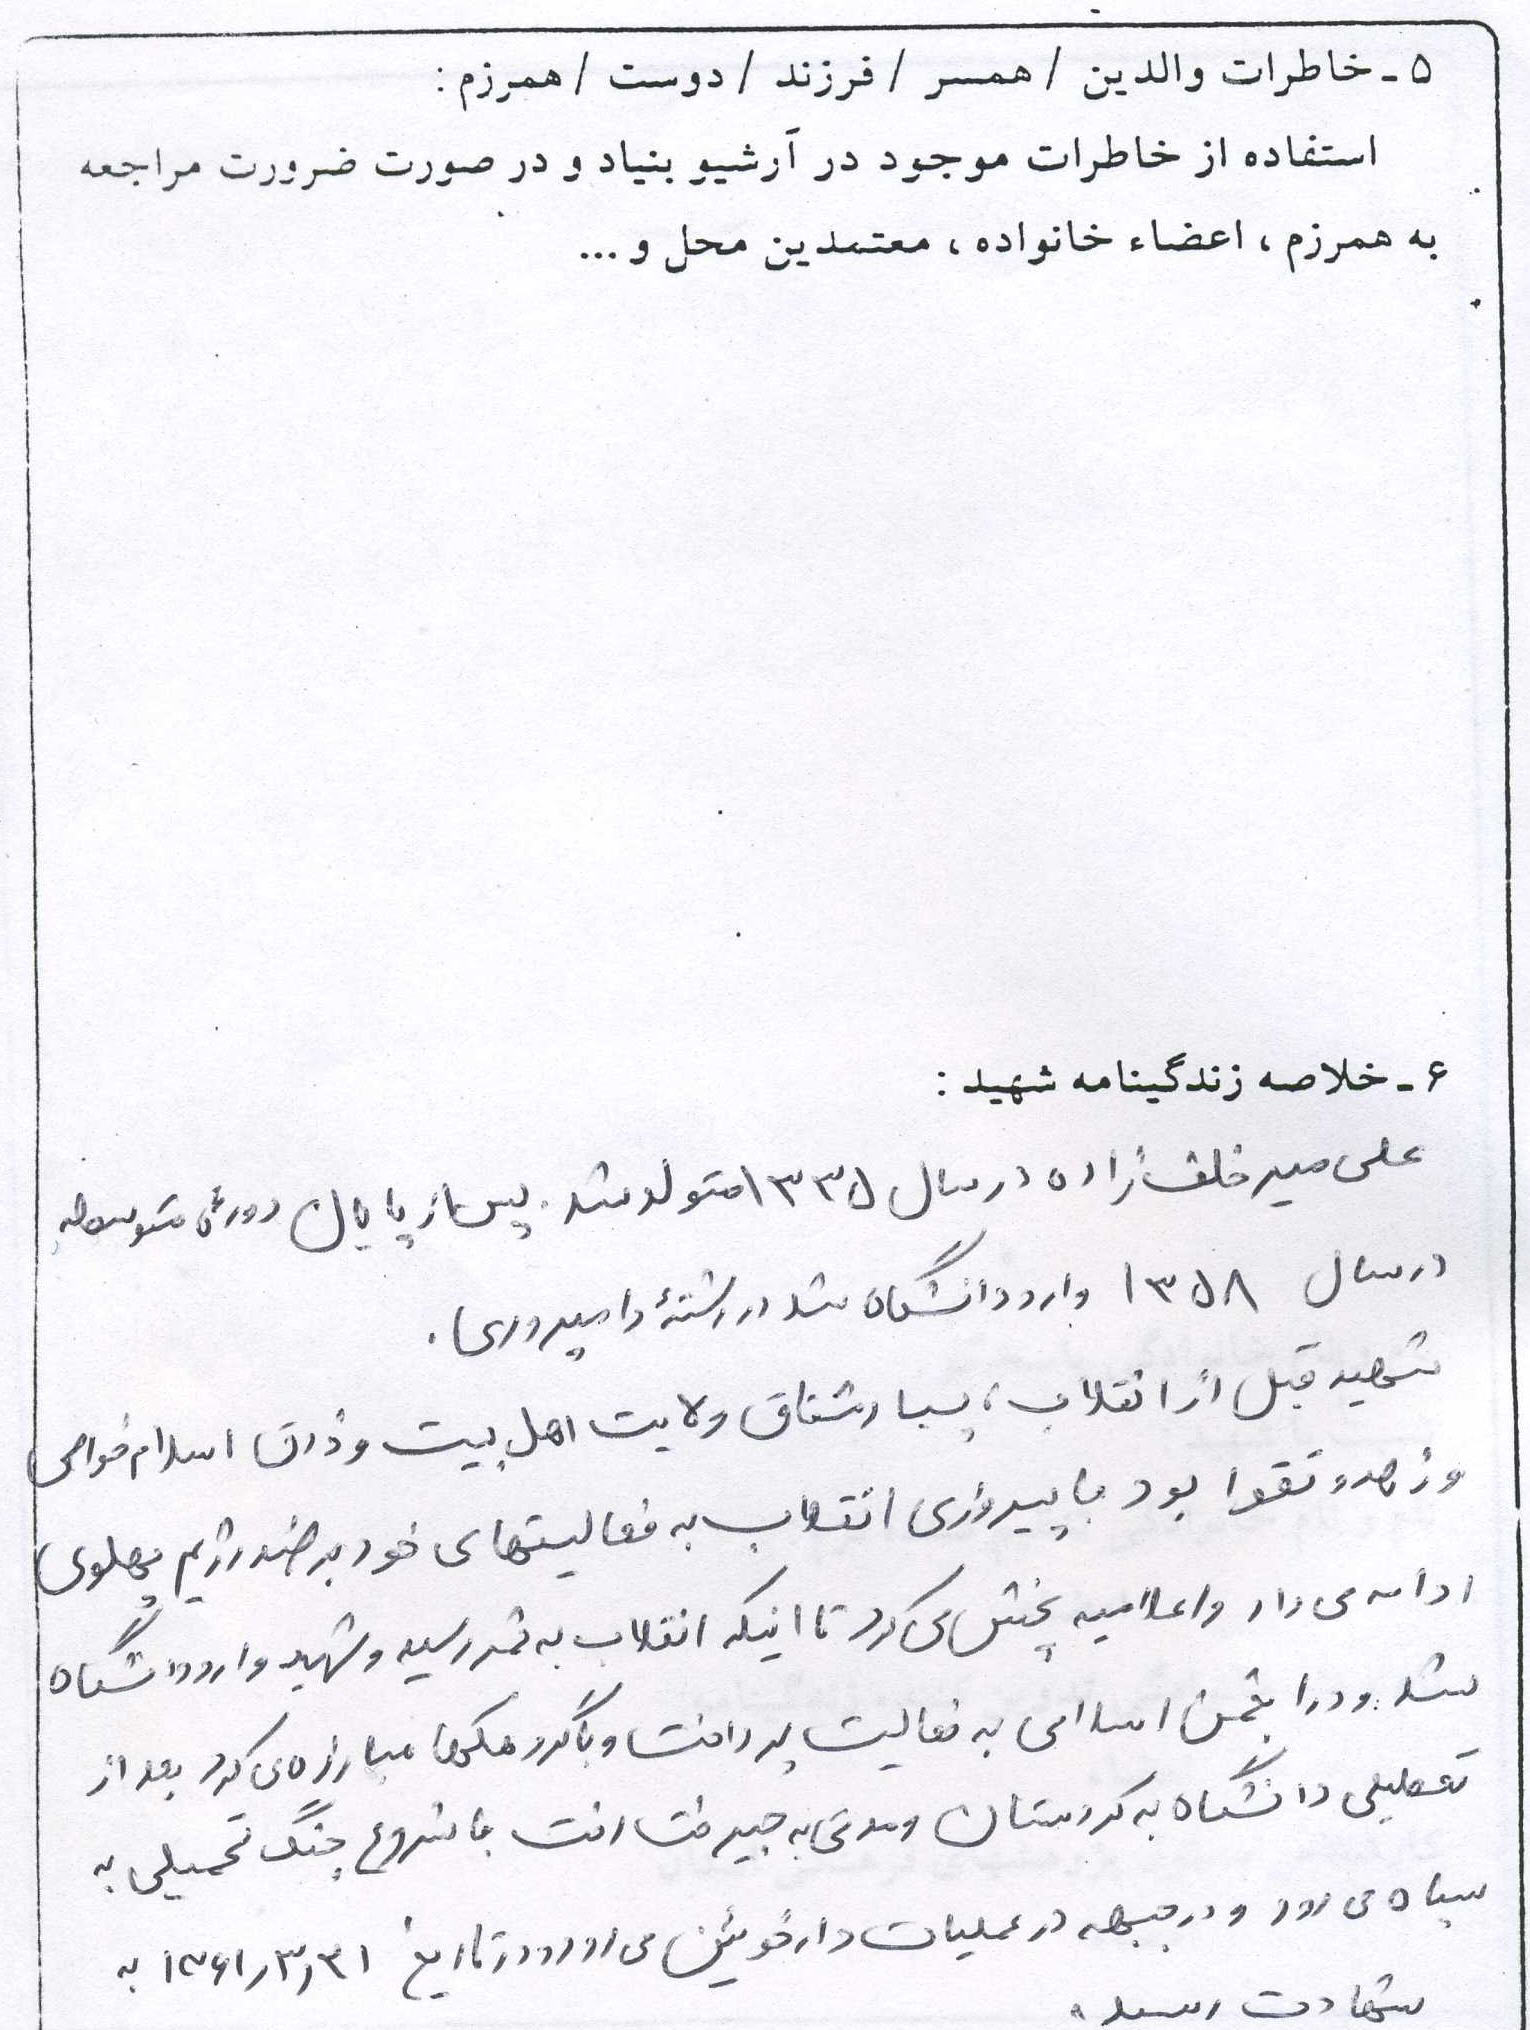 ۵ ـ خاطرات والدین / همسر / فرزند / دوست / همرزم :
استفاده از خاطرات موجود در آرشیو بنیاد و در صورت ضرورت مراجعه
به همرزم ، اعضاء خانواده ، معتمدین محل و ...
۶ ـ خلاصه زندگینامه شهید :
علی میر خلف زاده در سال ۱۳۳۵ متولد شد . پس از پایان دورهٔ متوسطه
در سال ۱۳۵۸ وارد دانشگاه شد در رشتهٔ دامپروری .
شهید قبل از انقلاب ، بسیار مشتاق ولایت اهل بیت و ذوق اسلام خواهی
و زهد و تقوا بود با پیروزی انقلاب به فعالیتهای خود بر ضد رژیم پهلوی
ادامه می داد و اعلامیه پخش می کرد تا اینکه انقلاب به ثمر رسید و شهید وارد دانشگاه
شد و در انجمن اسلامی به فعالیت پرداخت و با گروهکها مبارزه می کرد بعد از
تعطیلی دانشگاه به کردستان و مدتی به جیرفت رفت با شروع جنگ تحمیلی به
سپاه می رود و در جبهه در عملیات دارخوئین می رود و در تاریخ ۱۳۶۱٫۳٫۳۱ به
شهادت رسید .